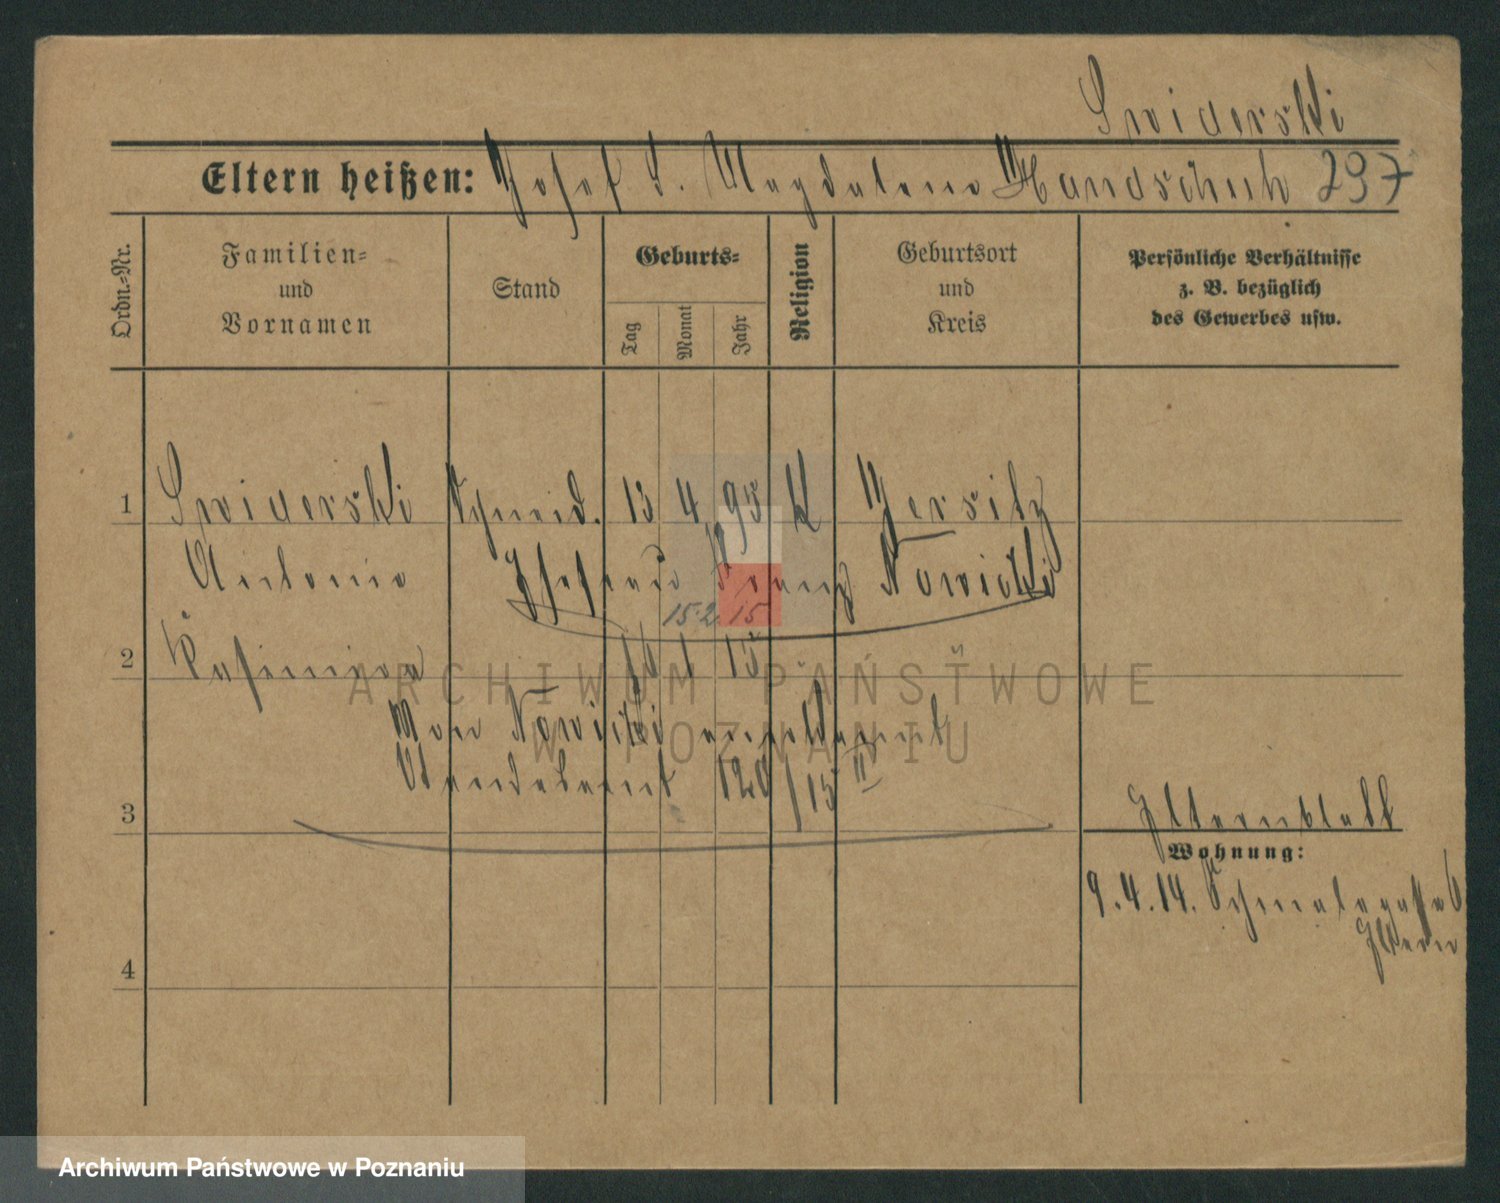 Swiderski
Eltern heißen: Josef u. Magdalena Handschuh 297
Ordn.-Nr.
Familien-
und
Vornamen
Stand
Geburts-
Tag
Monat
Jahr
Religion
Geburtsort
und
Kreis
Persönliche Verhältnisse
z. B. bezüglich
des Gewerbes usw.
1 Swiderski Schneid. 13 4 95 K Jersitz
Antonie Ehefrau Franz Nowicki
15.2.15
2 Kasimira 1 15
von Nowicki anerkannt
Standesamt 120/15 II
3
Elternblatt
Wohnung:
9.4.14. Schmalegasse 6
Eltern
4
ARCHIWUM PAŃSTWOWE
W POZNANIU
Archiwum Państwowe w Poznaniu